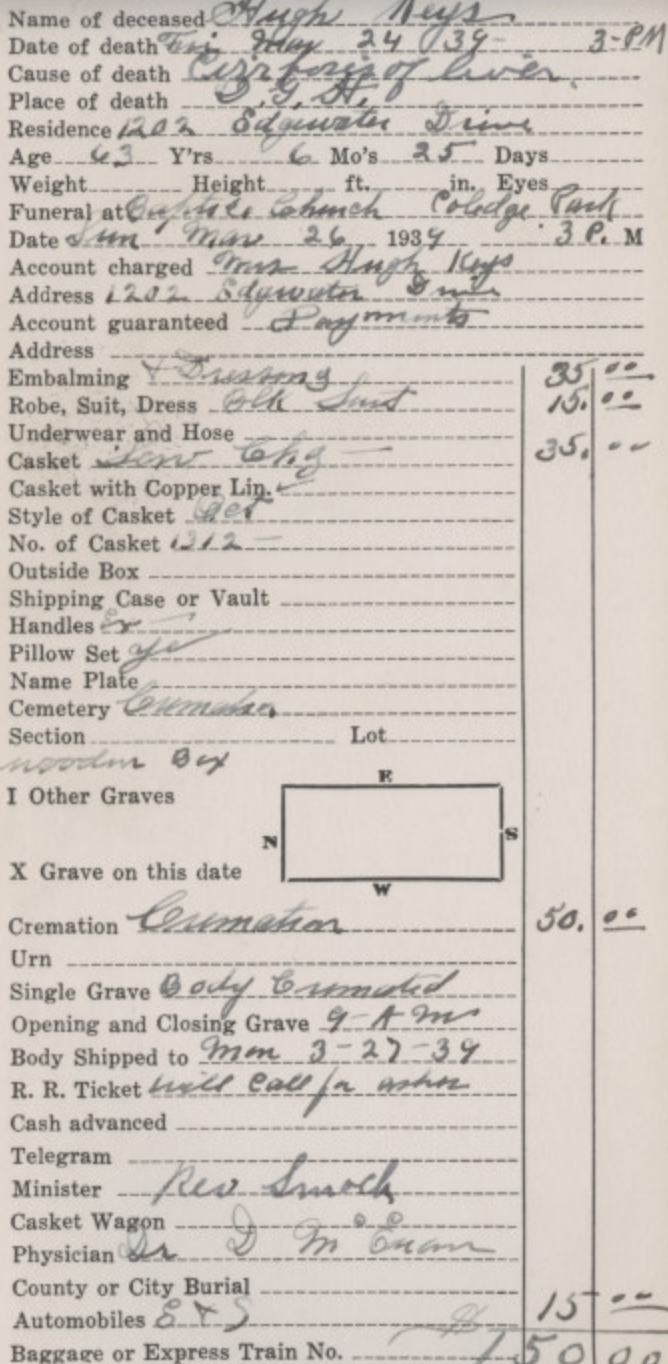 Name of deceased Hugh Keys
Date of death Fri Mar 24 39 3-PM
Cause of death Cirrhosis of liver.
Place of death O. G. H.
Residence 1202 Edgewater Drive
Age 63 Y'rs 6 Mo's 25 Days
Weight Height ft. in. Eyes
Funeral at Baptist Church Coledge Park
Date Sun Mar 26 1939 3 P. M
Account charged Mrs Hugh Keys
Address 1202 Edgwater Drive
Account guaranteed Payments
Address
Embalming & Dressing 35 00
Robe, Suit, Dress Blk Suit 15. 00
Underwear and Hose
Casket Chg 35. 00
Casket with Copper Lin.
Style of Casket Oct
No. of Casket 1312
Outside Box
Shipping Case or Vault
Handles Ex
Pillow Set
Name Plate
Cemetery
Section Lot
wooden Box
E
I Other Graves
N S
X Grave on this date
W
Cremation Cremation 50. 00
Urn
Single Grave Body Cremated
Opening and Closing Grave 9-A M
Body Shipped to Mon 3-27-39
R. R. Ticket will Call for ashes
Cash advanced
Telegram
Minister Rev Smock
Casket Wagon
Physician Dr D McEwan
County or City Burial
Automobiles E & S 15 00
Baggage or Express Train No. 150 00